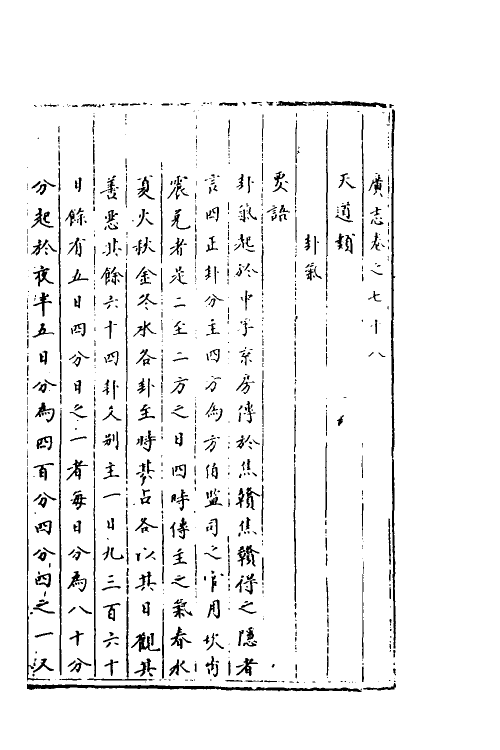 廣志卷之七十八
天道類
卦氣
要語
卦氣起於中孚京房傳於焦贛焦贛得之隱者
言四正卦分主四方為方伯監司之官用坎离
震兌者是二至二方之日四時傳主之氣春水
夏火秋金冬水各卦主時其占各以其日觀其
善惡其餘六十四卦又別主一日凡三百六十
日餘有五日四分日之一者每日分為八十分
分起於夜半五日分為四百分四分之一又